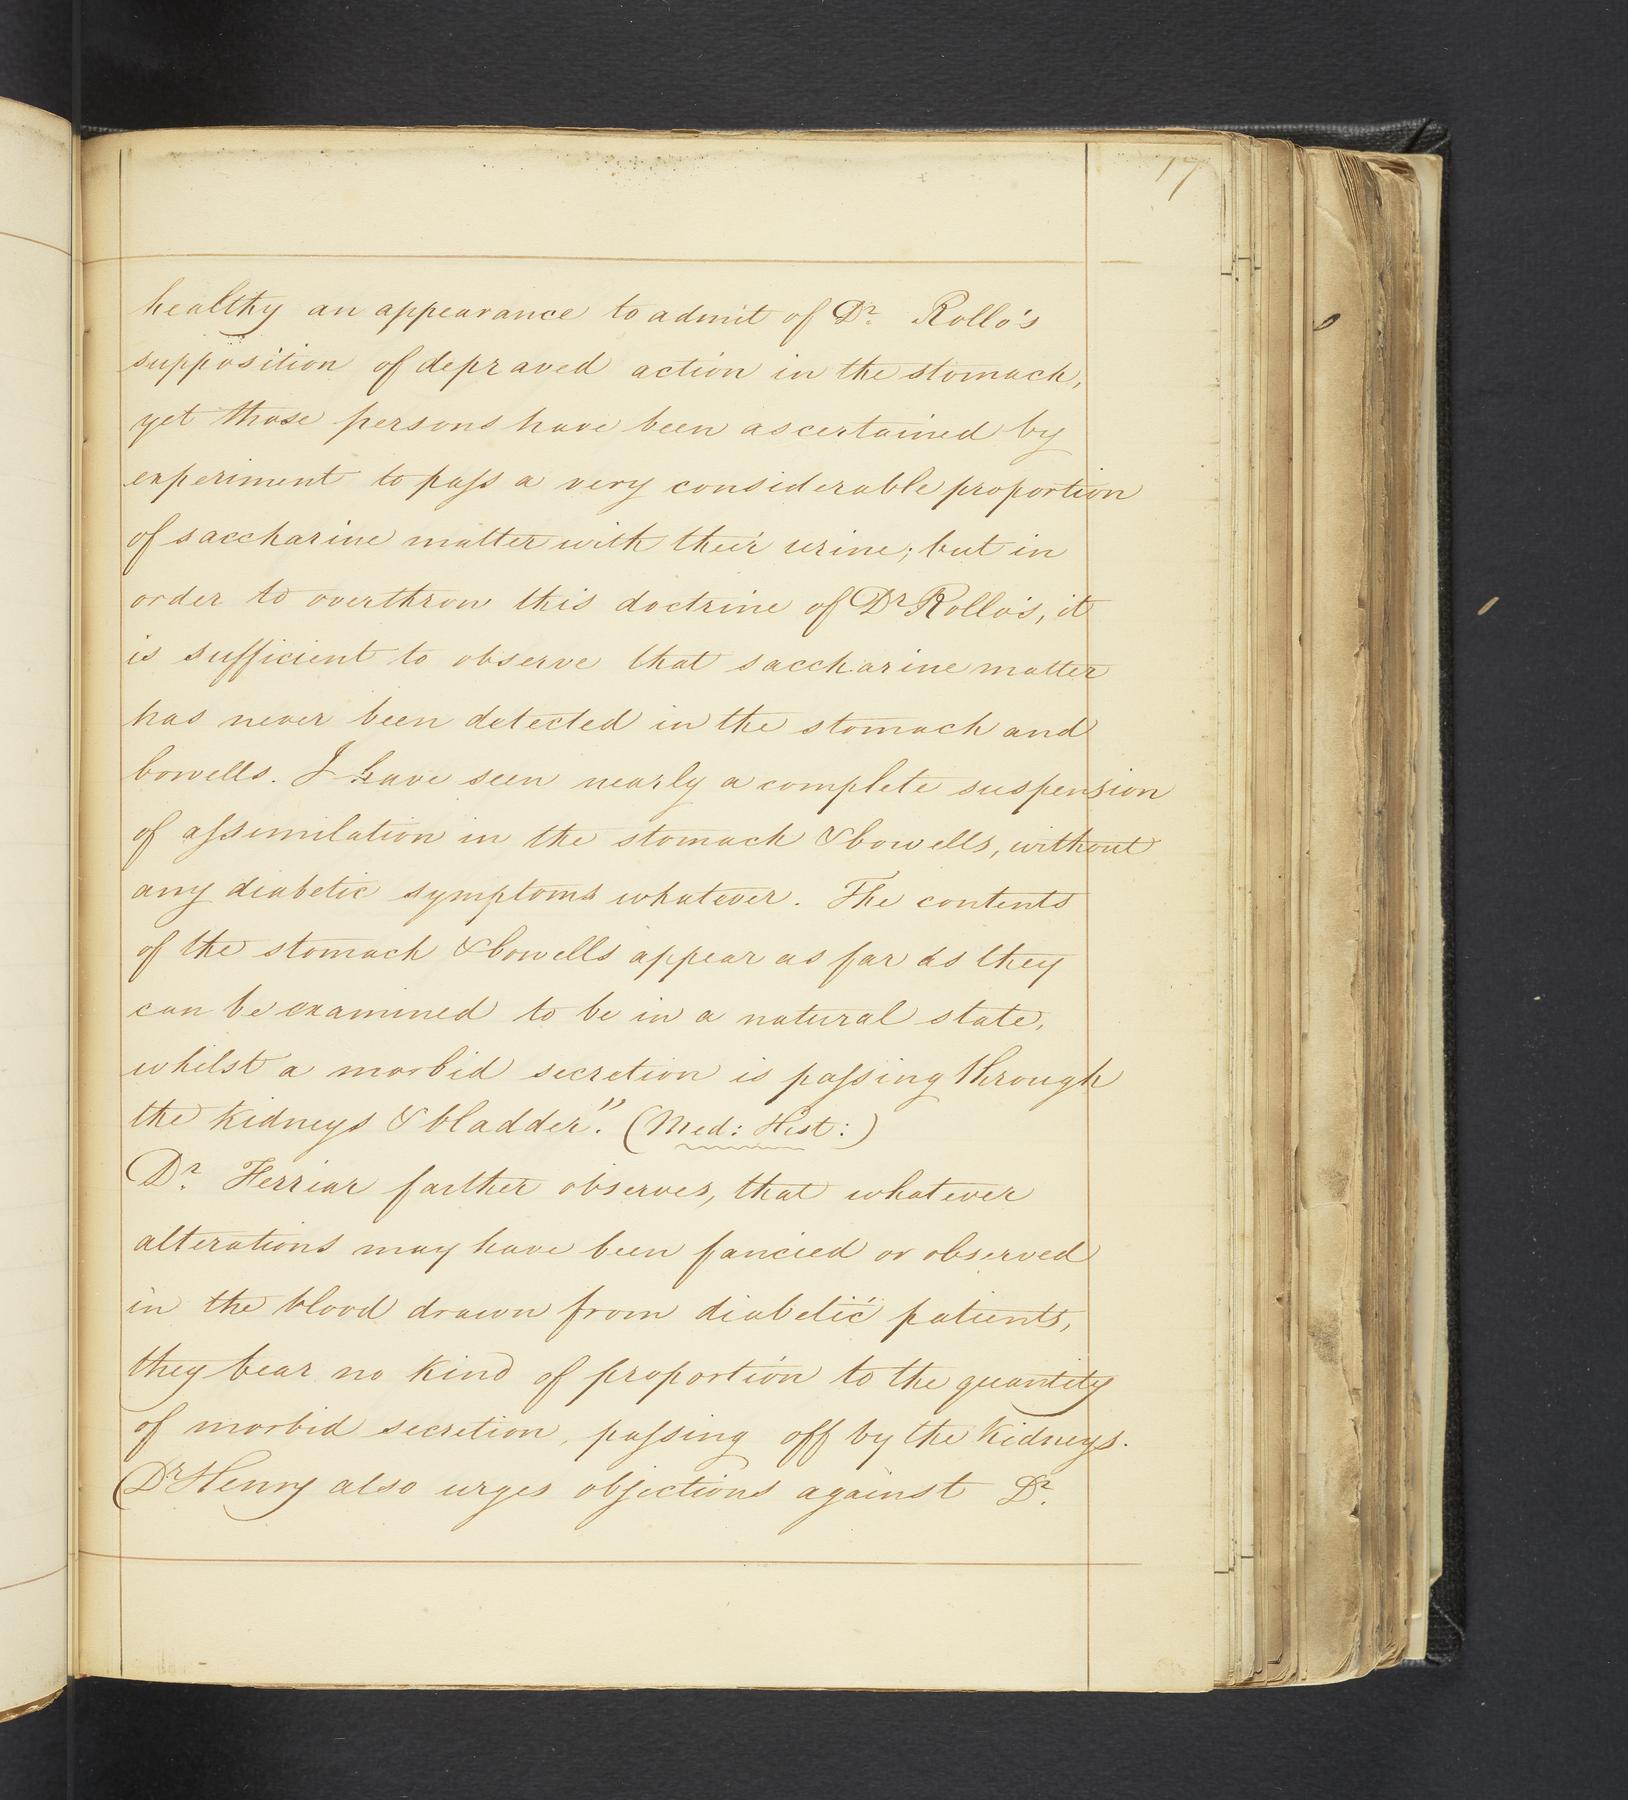 17
healthy an appearance to admit of Dr. Rollo's
supposition of depraved action in the stomach,
yet those persons have been ascertained by
experiment to paſs a very considerable proportion
of saccharine matter with their urine; but in
order to overthrow this doctrine of Dr Rollo's, it
is sufficient to observe that saccharine matter
has never been detected in the stomach and
bowells. I have seen nearly a complete suspension
of aſsimilation in the stomach & bowells, without
any diabetic symptoms whatever. The contents
of the stomach & bowells appear as far as they
can be examined to be in a natural state,
whilst a morbid secretion is paſsing through
the kidneys & bladder". (Med: Hist:)
Dr. Ferriar farther observes, that whatever
alterations may have been fancied or observed
in the blood drawn from diabetic patients,
they bear no kind of proportion to the quantity
of morbid secretion, paſsing off by the kidneys.
Dr Henry also urges objections against Dr.